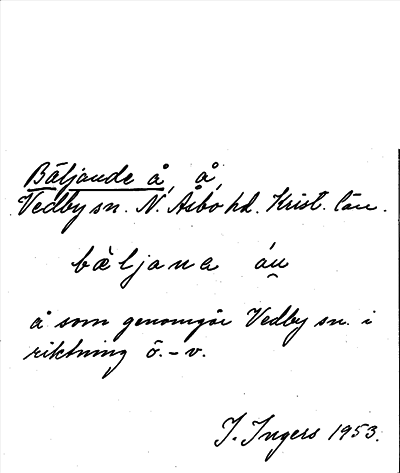 Bäljande å, å,
Vedby sn. N. Åsbo hd. Krist. län.
bæ̀ljana áu̯
å som genomgår Vedby sn. i
riktning ö. - v.
I. Ingers 1953.